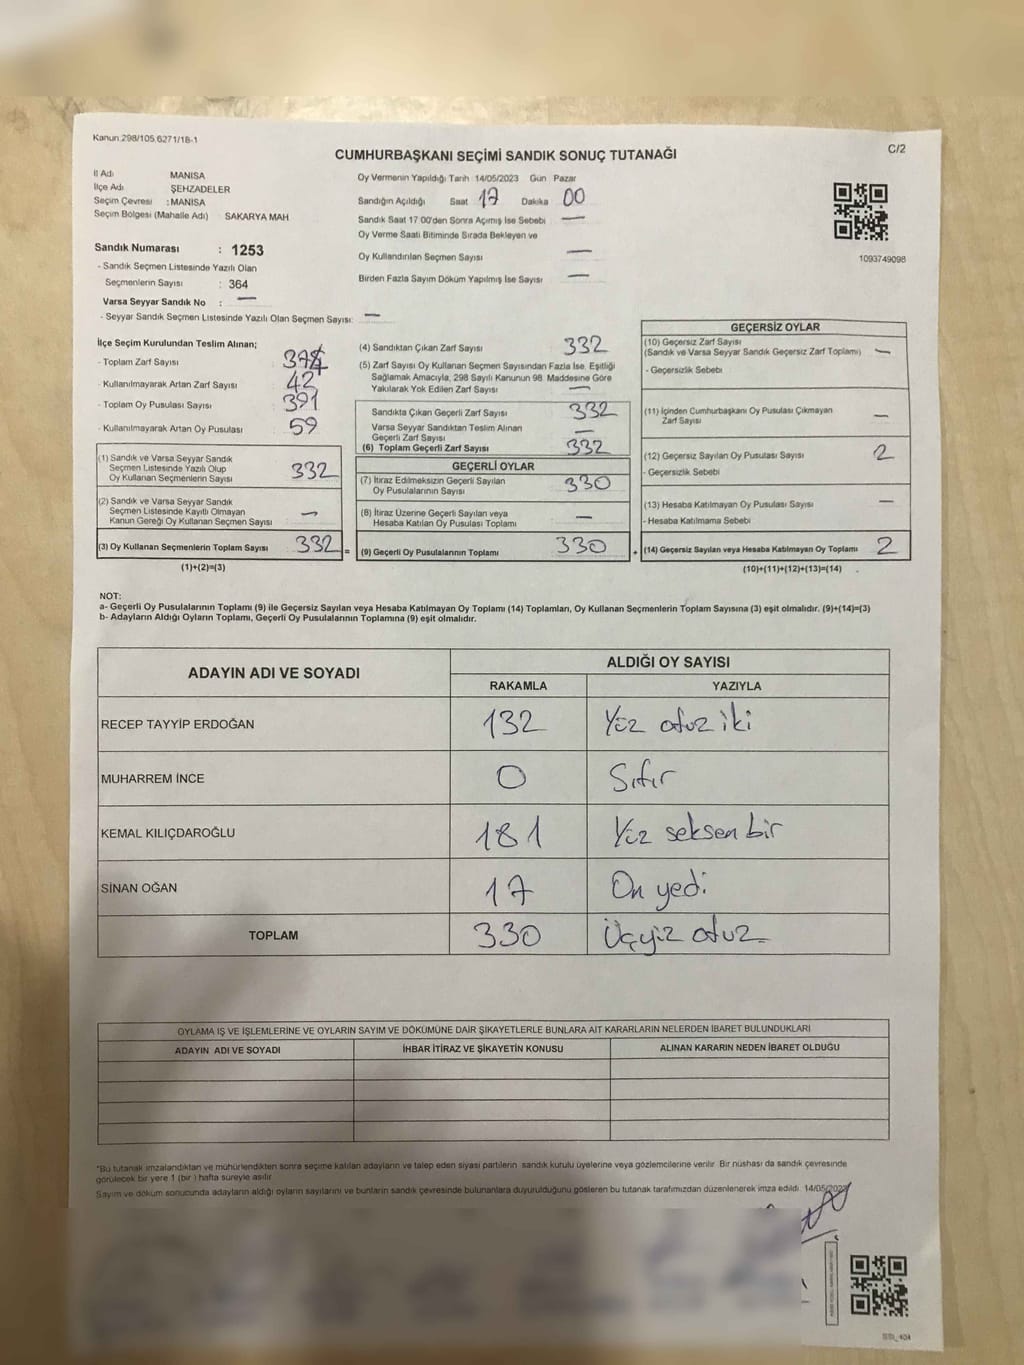 Kanun.298/105.6271/18-1
C/2
CUMHURBAŞKANI SEÇİMİ SANDIK SONUÇ TUTANAĞI
İl Adı MANİSA
İlçe Adı ŞEHZADELER
Seçim Çevresi : MANİSA
Seçim Bölgesi (Mahalle Adı) SAKARYA MAH
Sandık Numarası : 1253
- Sandık Seçmen Listesinde Yazılı Olan
Seçmenlerin Sayısı : 364
Varsa Seyyar Sandık No : —
- Seyyar Sandık Seçmen Listesinde Yazılı Olan Seçmen Sayısı: —
Oy Vermenin Yapıldığı Tarih 14/05/2023 Gün Pazar
Sandığın Açıldığı Saat 17 Dakika 00
Sandık Saat 17 00'den Sonra Açılmış İse Sebebi —
Oy Verme Saati Bitiminde Sırada Bekleyen ve
Oy Kullandırılan Seçmen Sayısı —
Birden Fazla Sayım Döküm Yapılmış İse Sayısı —
1093749098
İlçe Seçim Kurulundan Teslim Alınan;
- Toplam Zarf Sayısı
- Kullanılmayarak Artan Zarf Sayısı 42
- Toplam Oy Pusulası Sayısı 391
- Kullanılmayarak Artan Oy Pusulası 59
(1) Sandık ve Varsa Seyyar Sandık
Seçmen Listesinde Yazılı Olup
Oy Kullanan Seçmenlerin Sayısı 332
(2) Sandık ve Varsa Seyyar Sandık
Seçmen Listesinde Kayıtlı Olmayan
Kanun Gereği Oy Kullanan Seçmen Sayısı —
(3) Oy Kullanan Seçmenlerin Toplam Sayısı 332 =
(1)+(2)=(3)
(4) Sandıktan Çıkan Zarf Sayısı 332
(5) Zarf Sayısı Oy Kullanan Seçmen Sayısından Fazla İse, Eşitliği
Sağlamak Amacıyla, 298 Sayılı Kanunun 98. Maddesine Göre
Yakılarak Yok Edilen Zarf Sayısı —
Sandıkta Çıkan Geçerli Zarf Sayısı 332
Varsa Seyyar Sandıktan Teslim Alınan
Geçerli Zarf Sayısı —
(6) Toplam Geçerli Zarf Sayısı 332
GEÇERLİ OYLAR
(7) İtiraz Edilmeksizin Geçerli Sayılan
Oy Pusulalarının Sayısı 330
(8) İtiraz Üzerine Geçerli Sayılan veya
Hesaba Katılan Oy Pusulası Toplamı —
(9) Geçerli Oy Pusulalarının Toplamı 330 +
GEÇERSİZ OYLAR
(10) Geçersiz Zarf Sayısı
(Sandık ve Varsa Seyyar Sandık Geçersiz Zarf Toplamı) —
- Geçersizlik Sebebi
(11) İçinden Cumhurbaşkanı Oy Pusulası Çıkmayan
Zarf Sayısı —
(12) Geçersiz Sayılan Oy Pusulası Sayısı 2
- Geçersizlik Sebebi
(13) Hesaba Katılmayan Oy Pusulası Sayısı —
- Hesaba Katılmama Sebebi
(14) Geçersiz Sayılan veya Hesaba Katılmayan Oy Toplamı 2
(10)+(11)+(12)+(13)=(14)
NOT:
a- Geçerli Oy Pusulalarının Toplamı (9) ile Geçersiz Sayılan veya Hesaba Katılmayan Oy Toplamı (14) Toplamları, Oy Kullanan Seçmenlerin Toplam Sayısına (3) eşit olmalıdır. (9)+(14)=(3)
b- Adayların Aldığı Oyların Toplamı, Geçerli Oy Pusulalarının Toplamına (9) eşit olmalıdır.
ADAYIN ADI VE SOYADI
ALDIĞI OY SAYISI
RAKAMLA YAZIYLA
RECEP TAYYİP ERDOĞAN 132 Yüz otuz iki
MUHARREM İNCE 0 Sıfır
KEMAL KILIÇDAROĞLU 181 Yüz seksen bir
SİNAN OĞAN 17 On yedi
TOPLAM 330 Üçyüz otuz
OYLAMA İŞ VE İŞLEMLERİNE VE OYLARIN SAYIM VE DÖKÜMÜNE DAİR ŞİKAYETLERLE BUNLARA AİT KARARLARIN NELERDEN İBARET BULUNDUKLARI
ADAYIN ADI VE SOYADI İHBAR İTİRAZ VE ŞİKAYETİN KONUSU ALINAN KARARIN NEDEN İBARET OLDUĞU
"Bu tutanak imzalandıktan ve mühürlendikten sonra seçime katılan adayların ve talep eden siyasi partilerin sandık kurulu üyelerine veya gözlemcilerine verilir. Bir nüshası da sandık çevresinde
görülecek bir yere 1 (bir ) hafta süreyle asılır
Sayım ve döküm sonucunda adayların aldığı oyların sayılarını ve bunların sandık çevresinde bulunanlara duyurulduğunu gösteren bu tutanak tarafımızdan düzenlenerek imza edildi. 14/05/2023